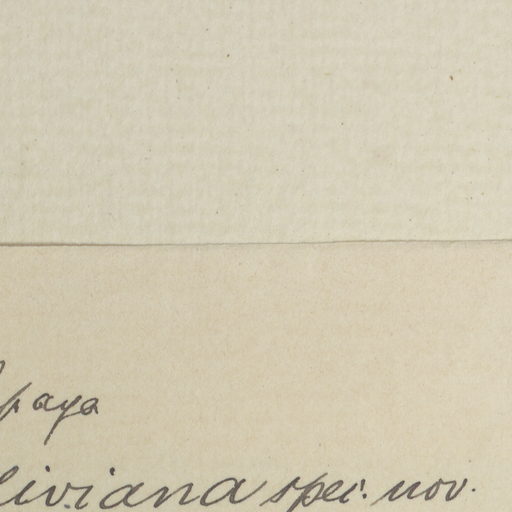 paya
liviana spec. nov.